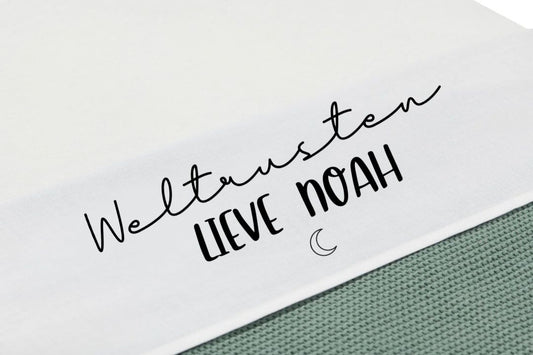 Weltrusten
LIEVE NOAH